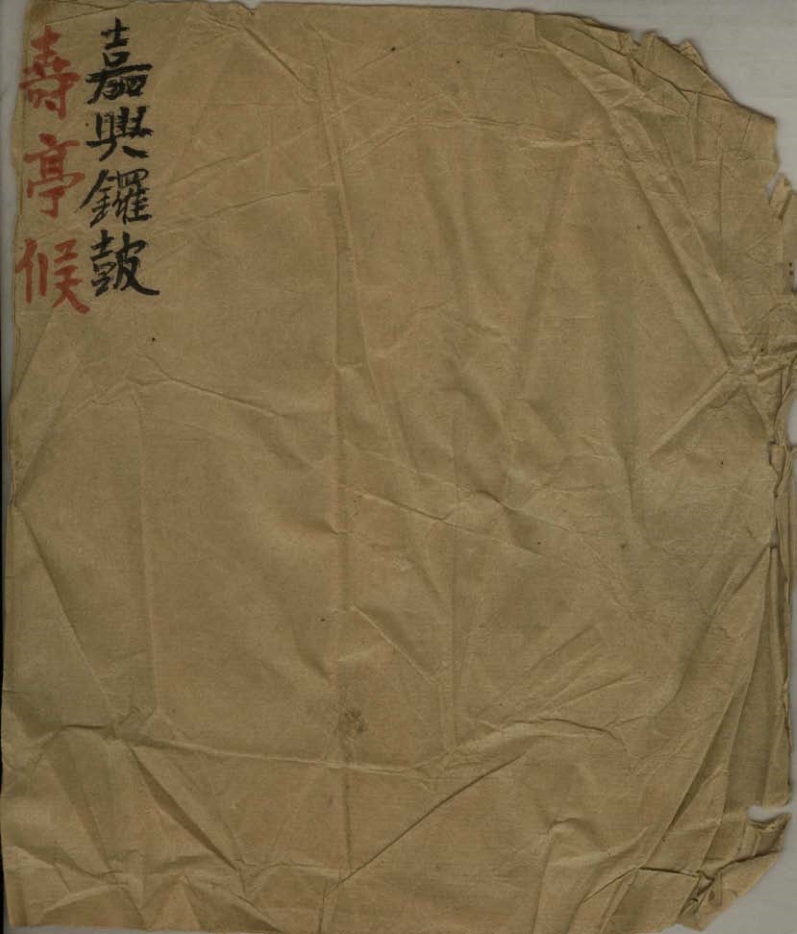 嘉興鑼鼓
壽亭候